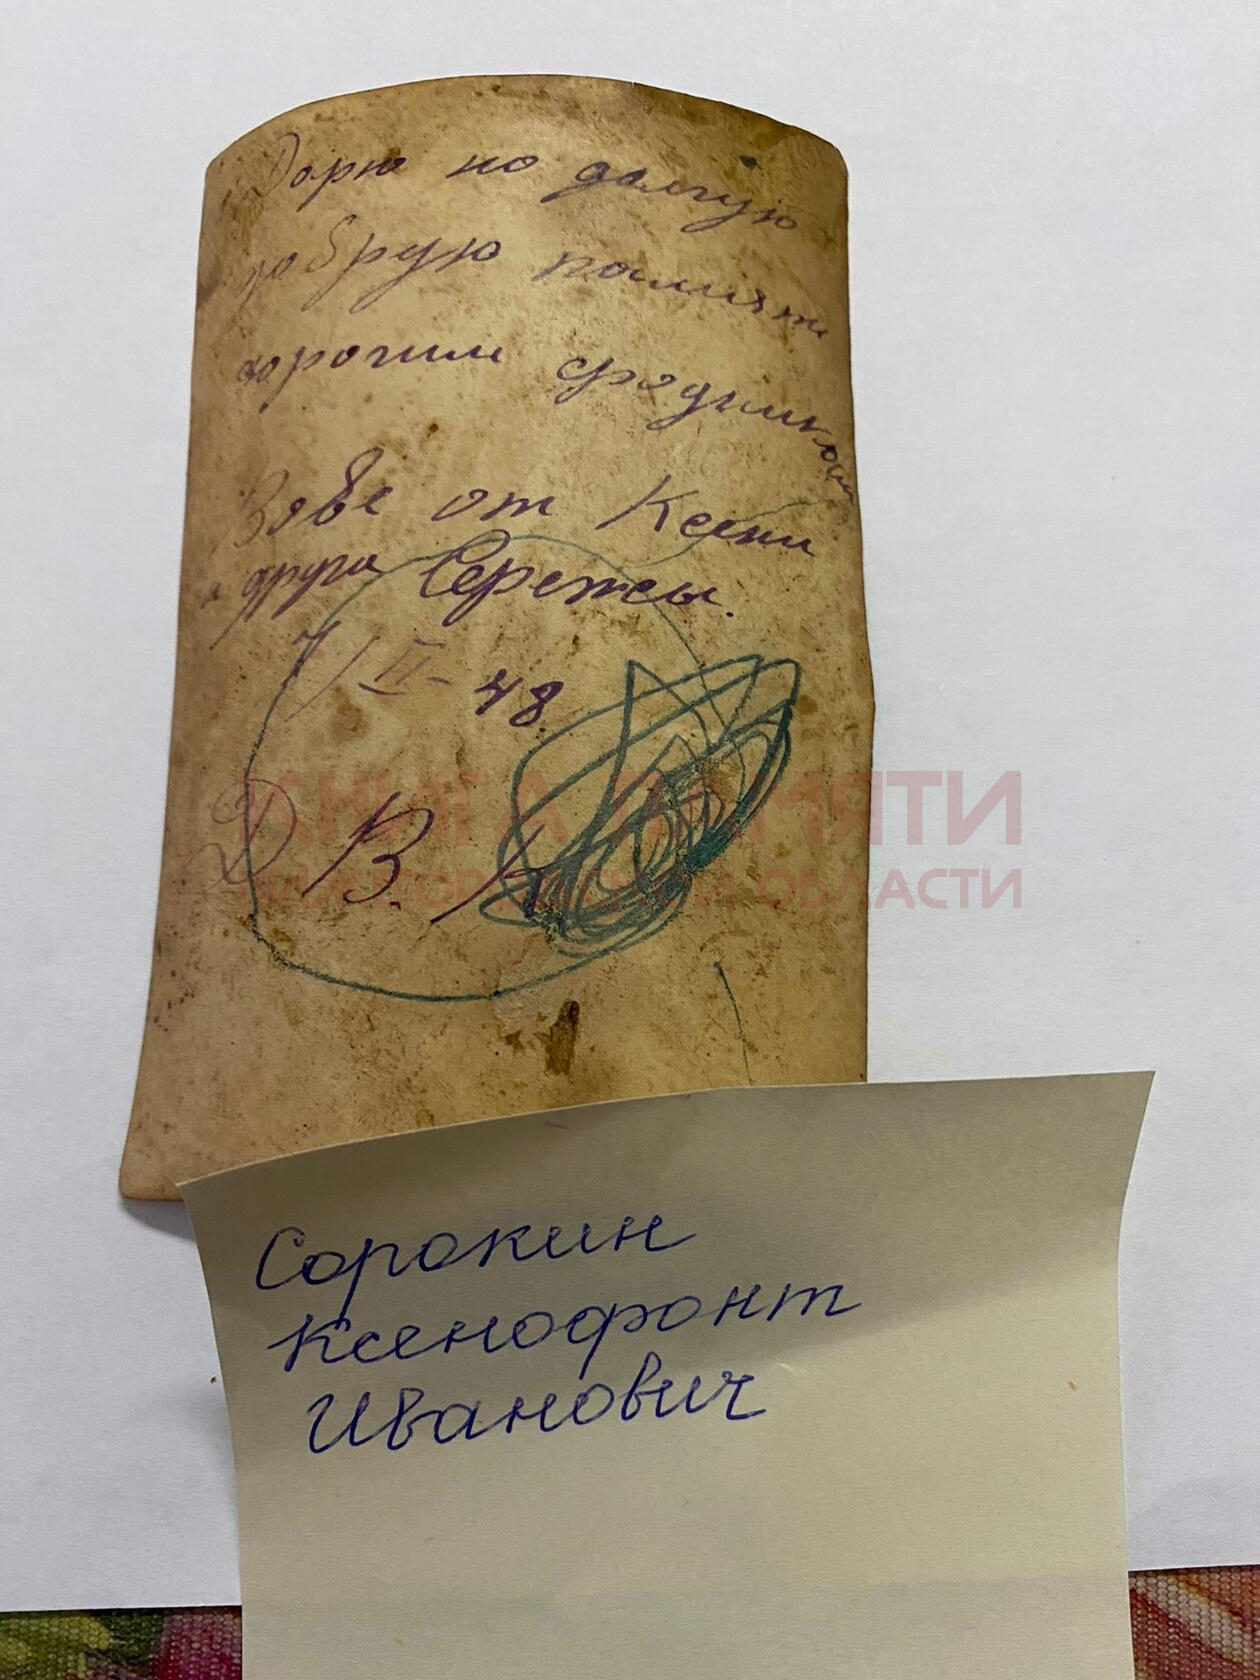 Дарю на долгую
добрую памиять
дорогим сродникам
Вове от Ксени
и друга Сережы.
VII - 48
Д. В. К
КНИГА ПАМЯТИ
НИЖЕГОРОДСКОЙ ОБЛАСТИ
Сорокин
Ксенофонт
Иванович